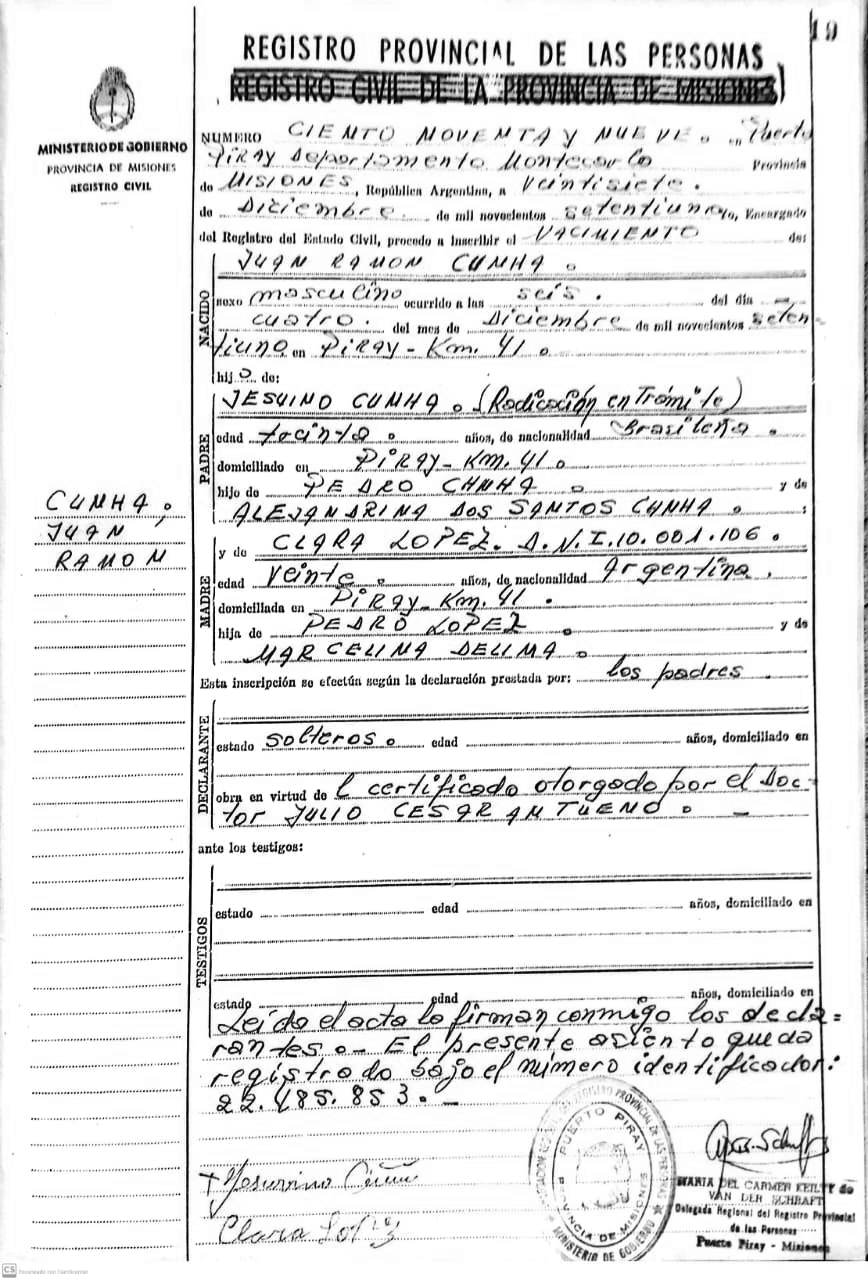 19
REGISTRO PROVINCIAL DE LAS PERSONAS
REGISTRO CIVIL DE LA PROVINCIA DE MISIONES
MINISTERIO DE GOBIERNO
PROVINCIA DE MISIONES
REGISTRO CIVIL
NUMERO CIENTO NOVENTA Y NUEVE. en Puerto
PIRAY Departamento Montecarlo Provincia
de MISIONES, República Argentina, a Veintisiete.
de Diciembre. de mil novecientos setentiuno yo, Encargado
del Registro del Estado Civil, procedo a inscribir el NACIMIENTO de:
JUAN RAMON CUNHA.
NACIDO
sexo masculino ocurrido a las seis. del día
cuatro. del mes de Diciembre de mil novecientos seten-
tiuno. en PIRAY-Km. 41.
hijo de:
JESUINO CUNHA. (Radicación en Trámite)
PADRE
edad tocinta. años, de nacionalidad Brasileña.
domiciliado en PIRAY-Km. 41.
hijo de PEDRO CUNHA. y de
ALEJANDRINA DOS SANTOS CUNHA. :
CUNHA.
JUAN
RAMON
MADRE
y de CLARA LOPEZ. D.N.I. 10.001.106.
edad Veinte. años, de nacionalidad Argentina.
domiciliada en PIRAY-Km. 41.
hija de PEDRO LOPEZ. y de
MARCELINA DELIMA.
Esta inscripción se efectúa según la declaración prestada por: los padres.
DECLARANTE
estado solteros. edad años, domiciliado en
obra en virtud de l certificado otorgado por el Doc-
tor JULIO CESAR ANTUENO. -
ante los testigos:
TESTIGOS
estado edad años, domiciliado en
estado edad años, domiciliado en
Leído el acta lo firman conmigo los decla-
rantes.- El presente asiento queda
registrado bajo el número identificador:
22.485.853. -
Clara Lopez
PUERTO PIRAY
PROVINCIA DE MISIONES
MINISTERIO DE GOBIERNO
REGISTRO PROVINCIAL DE LAS PERSONAS
MARIA DEL CARMEN KEILTY de
VAN DER SCHRAFT
Delegada Regional del Registro Provincial
de las Personas
Puerto Piray - Misiones
CS